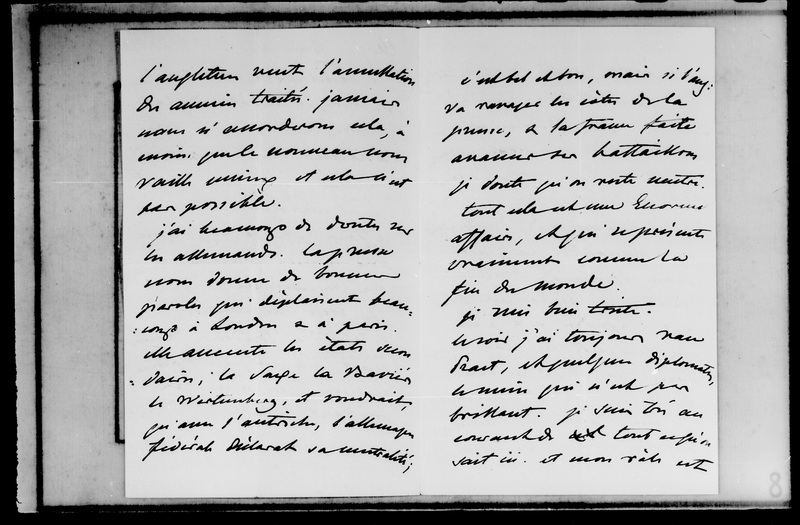 l'angleterre veut l'annullation
des anciens traités. jamais
nous n'accorderons cela, à
moins que le nouveau nous
vaille mieux et cela n'est
pas possible.
j'ai beaucoup de doutes sur
les allemands. la prusse
nous donne de bonnes
paroles qui déplaisent beau=
=coup à Londres et à paris.
elle ameute les états secon
=daires; la Saxe la Bavière
le Würtemberg, et voudrait,
qu'avec l'autriche, l'allemagne
fédérale déclarat sa neutralité;
c'est bel et bon, mais si l'ang:
va ravager les côtes de la
prusse, et la france faite
avancer ses battaillons
je doute qu'on reste neutre.
tout cela est une Enorme
affaire, et qui représente
vraiment comme la
fin du monde.
je suis bien triste.
ce soir j'ai toujours
et quelques diplomates,
qui n'est pas
brillant. je suis très au
courant de tout ce qu'on
sait ici. et mon rôle est
8